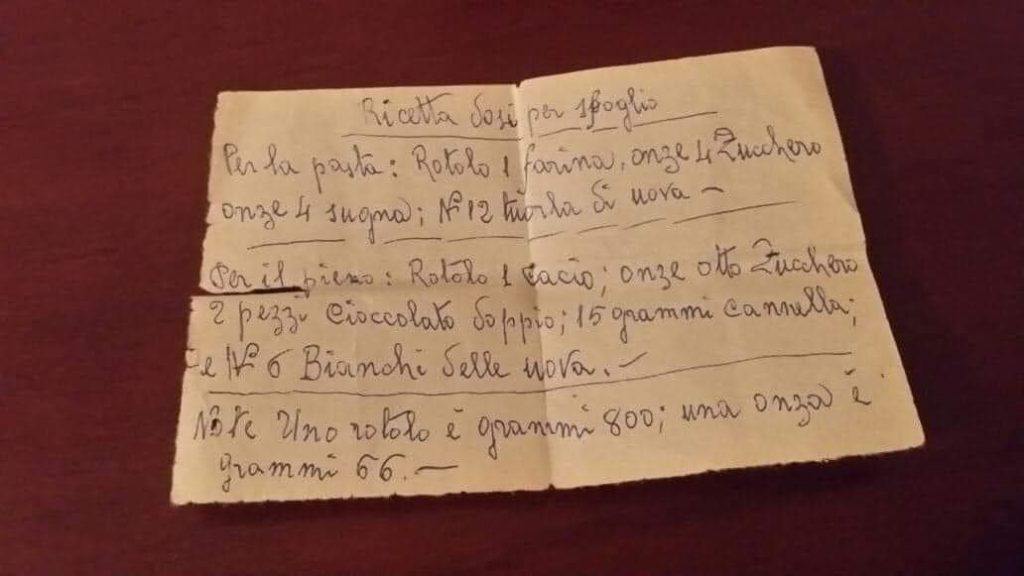 Ricetta dosi per sfoglio
Per la pasta: Rotolo 1 farina, onze 4 Zucchero
onze 4 sugna; N° 12 tuorla di uova –
Per il pieno: Rotolo 1 Cacio; onze otto Zucchero
2 pezzi Cioccolato doppio; 15 grammi Cannella;
e N° 6 Bianchi delle uova. –
Note Uno rotolo è grammi 800; una onza è
grammi 66. –